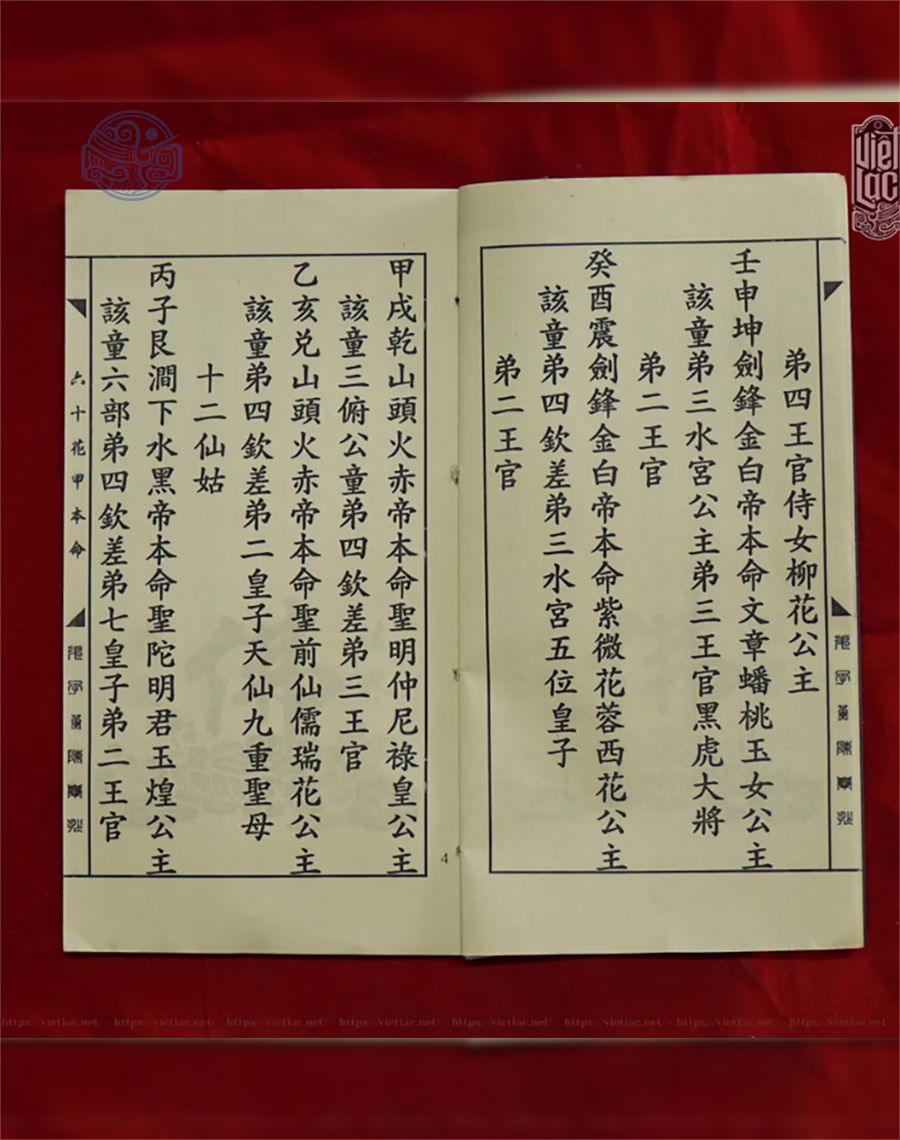 弟四王官侍女柳花公主
壬申坤劍鋒金白帝本命文章蟠桃玉女公主
該童弟三水宮公主弟三王官黑虎大將
弟二王官
癸酉震劍鋒金白帝本命紫微花蓉西花公主
該童弟四欽差弟三水宮五位皇子
弟二王官
甲戌乾山頭火赤帝本命聖明仲尼祿皇公主
該童三俯公童弟四欽差弟三王官
乙亥兌山頭火赤帝本命聖前仙儒瑞花公主
該童弟四欽差弟二皇子天仙九重聖母
十二仙姑
丙子艮澗下水黑帝本命聖陀明君玉煌公主
該童六部弟四欽差弟七皇子弟二王官
六十花甲本命
4
Việt Lạc
https://vietlac.net/ - https://vietlac.net/ - https://vietlac.net/ - https://vietlac.net/ - https://vietlac.net/ - https://vietlac.net/ - https://vietlac.net/ - https://vietlac.net/